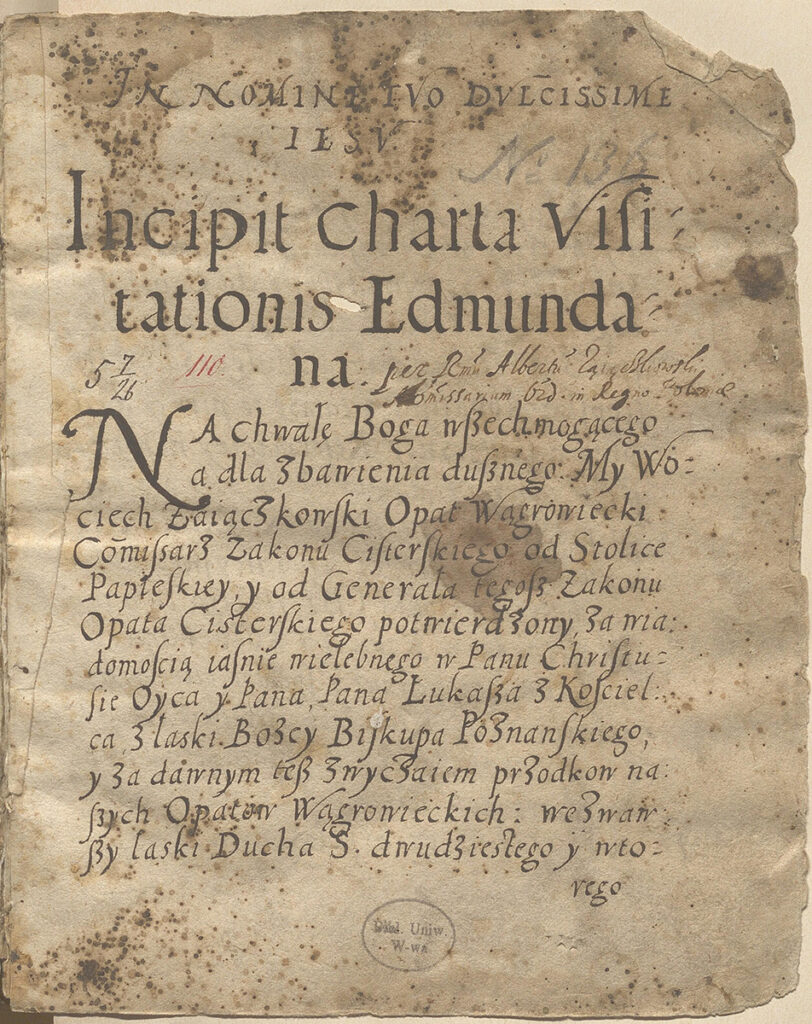 IN NOMINE TVO DVLCISSIME
IESV
Nº 136
Incipit Charta Visi⸗
tationis Edmunda⸗
na.
per Rmũ Albertũ
Comissarium Ord. in Regno Poloniæ
5 7/26
110
NA chwałę Boga wßechmogącego
a, dla zbawienia dußnego: My Wo⸗
ciech Zaiączkowski Opat Wągrowiecki
Cõmissarz Zakonu Cisterskiego od Stolice
Papieskiey, y od Generała tegoß Zakonu
Opata Cisterskiego potwierdzony, za wia⸗
domością iasnie wielebnego w Panu Christu⸗
sie Oyca y Pana, Pana Łukaßa z Kosciel⸗
ca, z laski Bozey Biskupa Poznanskiego,
y za dawnym teß zwyczaiem przodkow na⸗
ßych Opatow Wągrowieckich: wezwaw⸗
ßy laski Ducha S. dwudziestego y wto⸗
rego
Bibl. Uniw.
W-wa